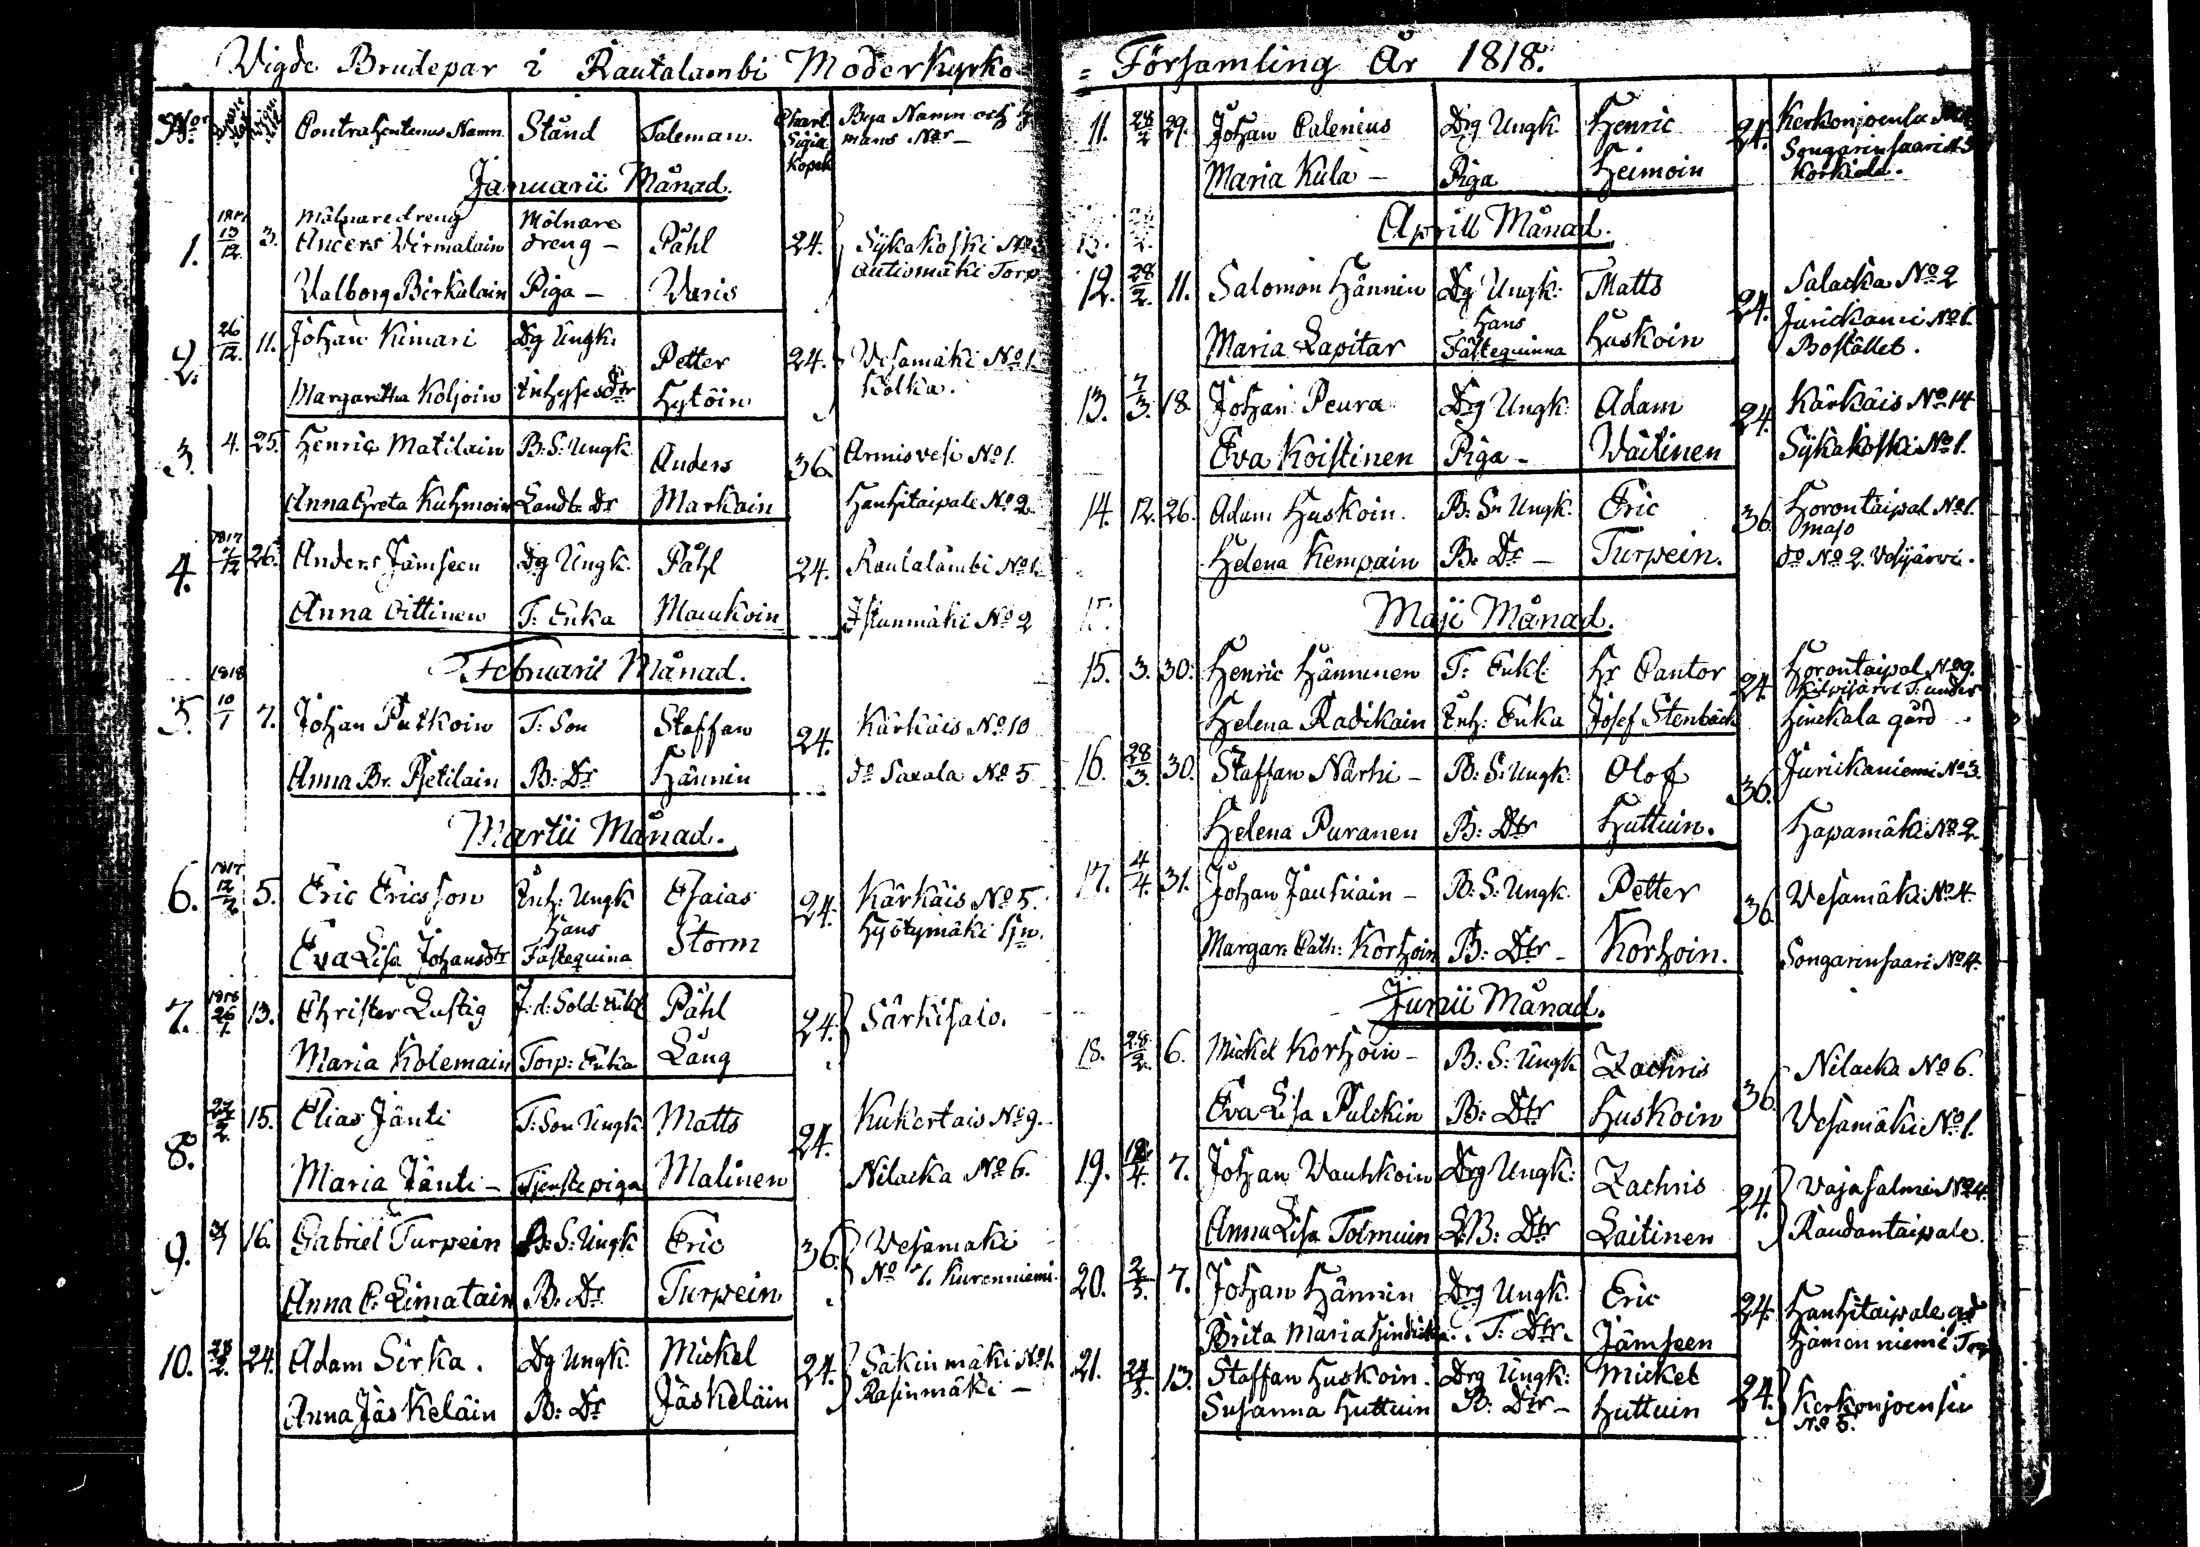 Vigde Brudepar i Rautalambi Moderkyrko
No Contrahentenus Namn. Stånd Taleman. Chart. Sigill. Kopek Bya Namn och H mans Nor –
Januarii Månad.
1. 1817 13/12 3. Mölnaredreng Anders Wirmalain Mölnare dreng – Påhl 24. Sykäkoski No 3
Valborg Birkalain Piga – Waris Autiomäki Torp
2. 26/12. 11. Johan Kimari Dg Ungk. Petter 24. Vesamäki No 1.
Margaretha Koljoin Enhysesdtr Hytöin Kolka.
3. 4. 25. Henric Matilain B: S: Ungk Anders 36 Armisvesi No 1.
Anna Greta Kuhmoin Landb. Dr Markain Hanhitaipale No 2.
4. 1817 7/12 26. Anders Jämseen Dg Ungk. Påhl 24. Rautalambi No 1.
Anna Oittinen T: Enka Maukoin Istunmäki No 2
Februarii Månad.
5. 1818 10/1 7. Johan Putkoin T: Son Staffan 24. Kärkäis No 10
Anna Br. Pietilain B: Dr Hännin do Saxala No 5
Martii Månad.
6. 1817 12/2 5. Eric Ericsson Enh: Ungk Esaias 24. Kärkäis No 5.
Eva Lisa Johansdtr Hans Fästequina Storm Hyötymäki
7. 1818 26/1 13. Christer Lustig Sold: Enkl Påhl 24. Särkisalo.
Maria Kolemain Torp: Enka Lång
8. 22/2 15. Elias Jänti T: Son Ungk Matts 24. Kukertais No 9.
Maria Jänti – Tjenstepiga Malinen Nilacka No 6.
9. 16. Gabriel Turpein B: S: Ungk Eric 36. Vesamäki
Anna C. Limatain B: Dr Turpein No 1. Kurenniemi.
10. 28/2. 24. Adam Sirka. Dg Ungk. Mickel 24. Säkinmäki No 1.
Anna Jäskeläin B: Dr Jäskeläin Rasinmäki –
= Församling År 1818.
11. 28/2 29. Johan Calenius Drg Ungk. Henric 24. Kerkonjoensu
Maria Kula – Piga Heimoin Songarinsaari Korkiala.
Aprill Månad.
12. 28/2. 11. Salomon Hännin Dg Ungk: Matts 24. Salacka No 2
Maria Lapitar Hans Fästequinna Huskoin No 1. Bostället.
13. 7/3. 18. Johan Peura Drg Ungk. Adam 24. Kärkäis No 14
Eva Koistinen Piga – Wäitinen Sykäkoski No 1.
14. 12. 26. Adam Huskoin. B: Sn Ungk. Eric 36. Horontaipal No 1.
Helena Kempain B: Dr – Turpein. do No 2. Vesijärvi.
15.
Maji Månad.
15. 3. 30. Henric Hänninen T: Enkl: Hr Cantor 24 Horontaipal No 9.
Helena Radikain Enh: Enka Josef Stenbäck Hinckala gård
16. 28/3. 30. Staffan Närhi – B: S: Ungk. Olof 36. Jurickaniemi No 3.
Helena Puranen B: Dtr Huttuin. Hapamäki No 2.
17. 4/4. 31. Johan Jauhiain – B: S: Ungk. Petter 36 Vesamäki No 4.
Margar: Cath: Korhoin B: Dtr – Korhoin. Songarinsaari No 4.
Junii Månad.
18. 28/2. 6. Mickel Korhoin – B: S: Ungk Zachris 36. Nilacka No 6.
Eva Lisa Pulckin B: Dtr Huskoin Vesamäki No 1.
19. 12/4. 7. Johan Vauhkoin Drg Ungk: Zachris 24. Vajasalmi No 24.
Anna Lisa Tolmuin L:B: Dtr Laitinen Raudantaipale.
20. 2/5. 7. Johan Hännin Drg Ungk. Eric 24. Hanhitaipale gd
Brita Maria T: Dtr. Jämseen Hämonniemi Torp
21. 24/5. 13. Staffan Huskoin. Drg Ungk: Mickel 24. Kerkonjoensu
Susanna Huttuin B: Dtr – Huttuin No 5.